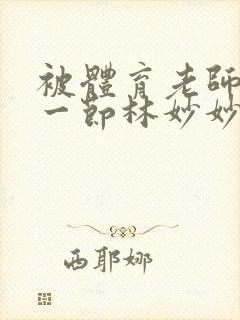 被體育老師
一節林妙妙
西耶娜